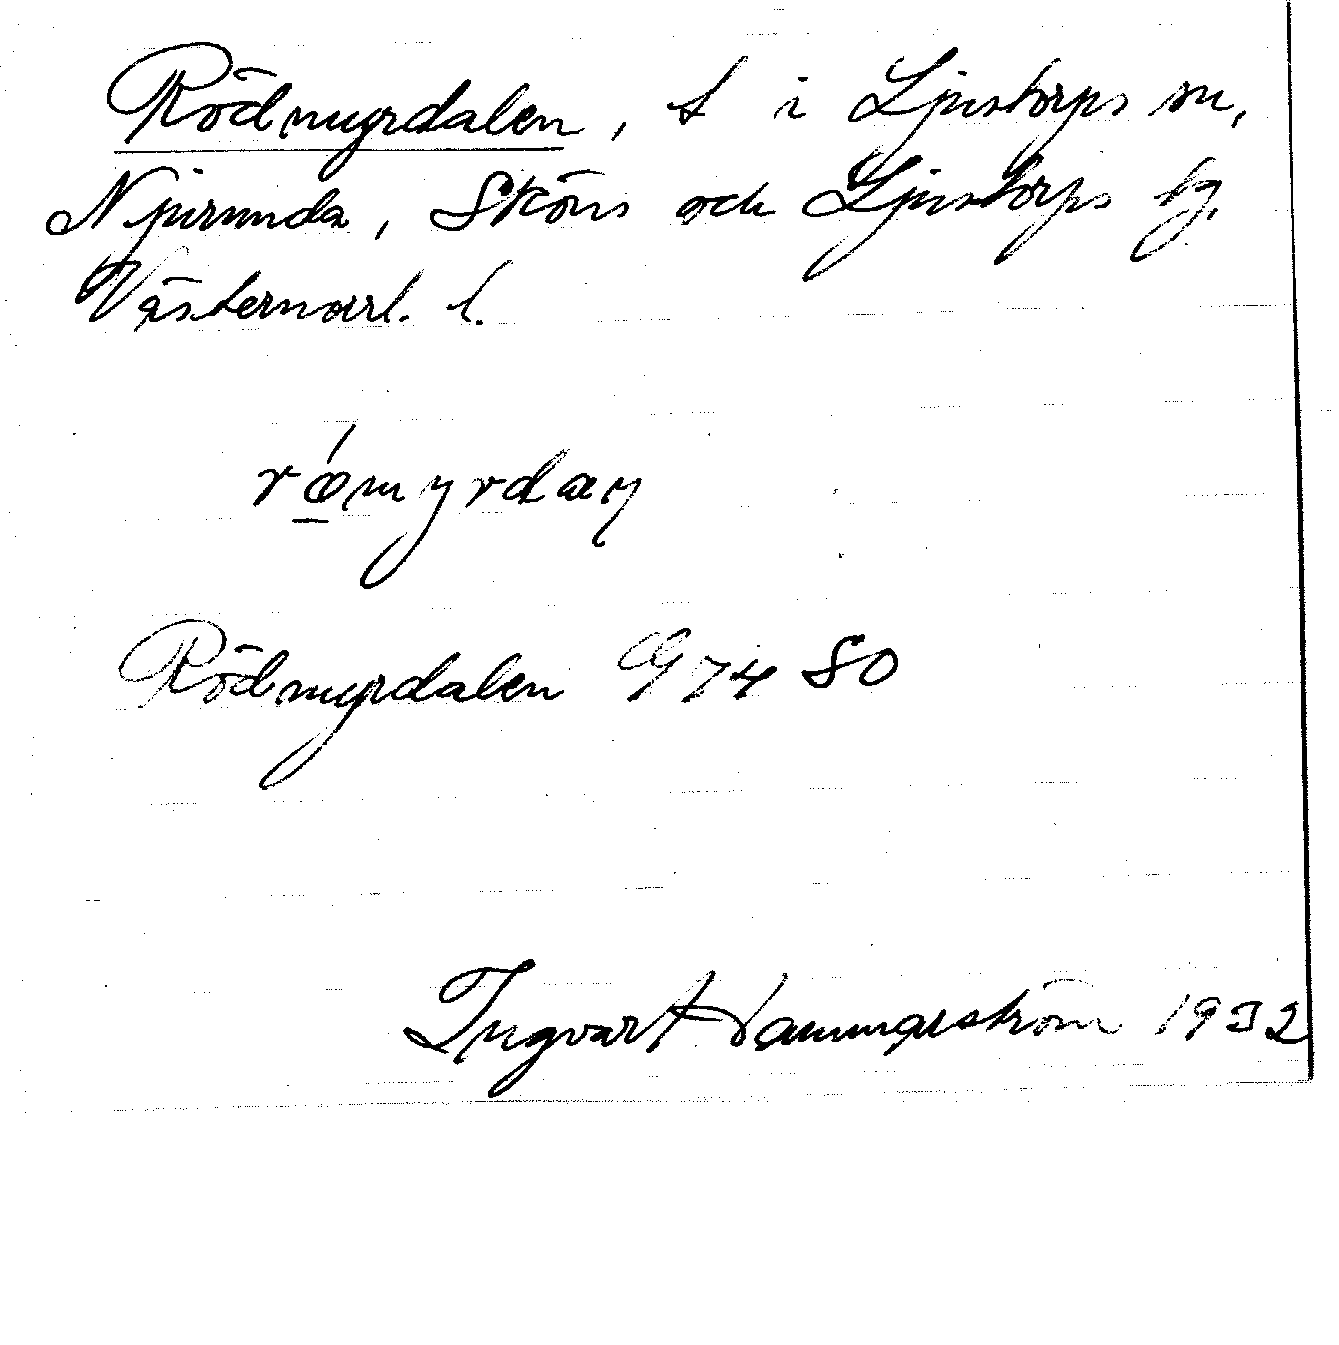 Rödmyrdalen, t i Ljustorps sn,
Njurunda, Sköns och Ljustorps tg,
Västernorrl. l.
rǿ̱myrdaɳ
Rödmyrdalen G 74 80
Ingvar Hammarström 1932